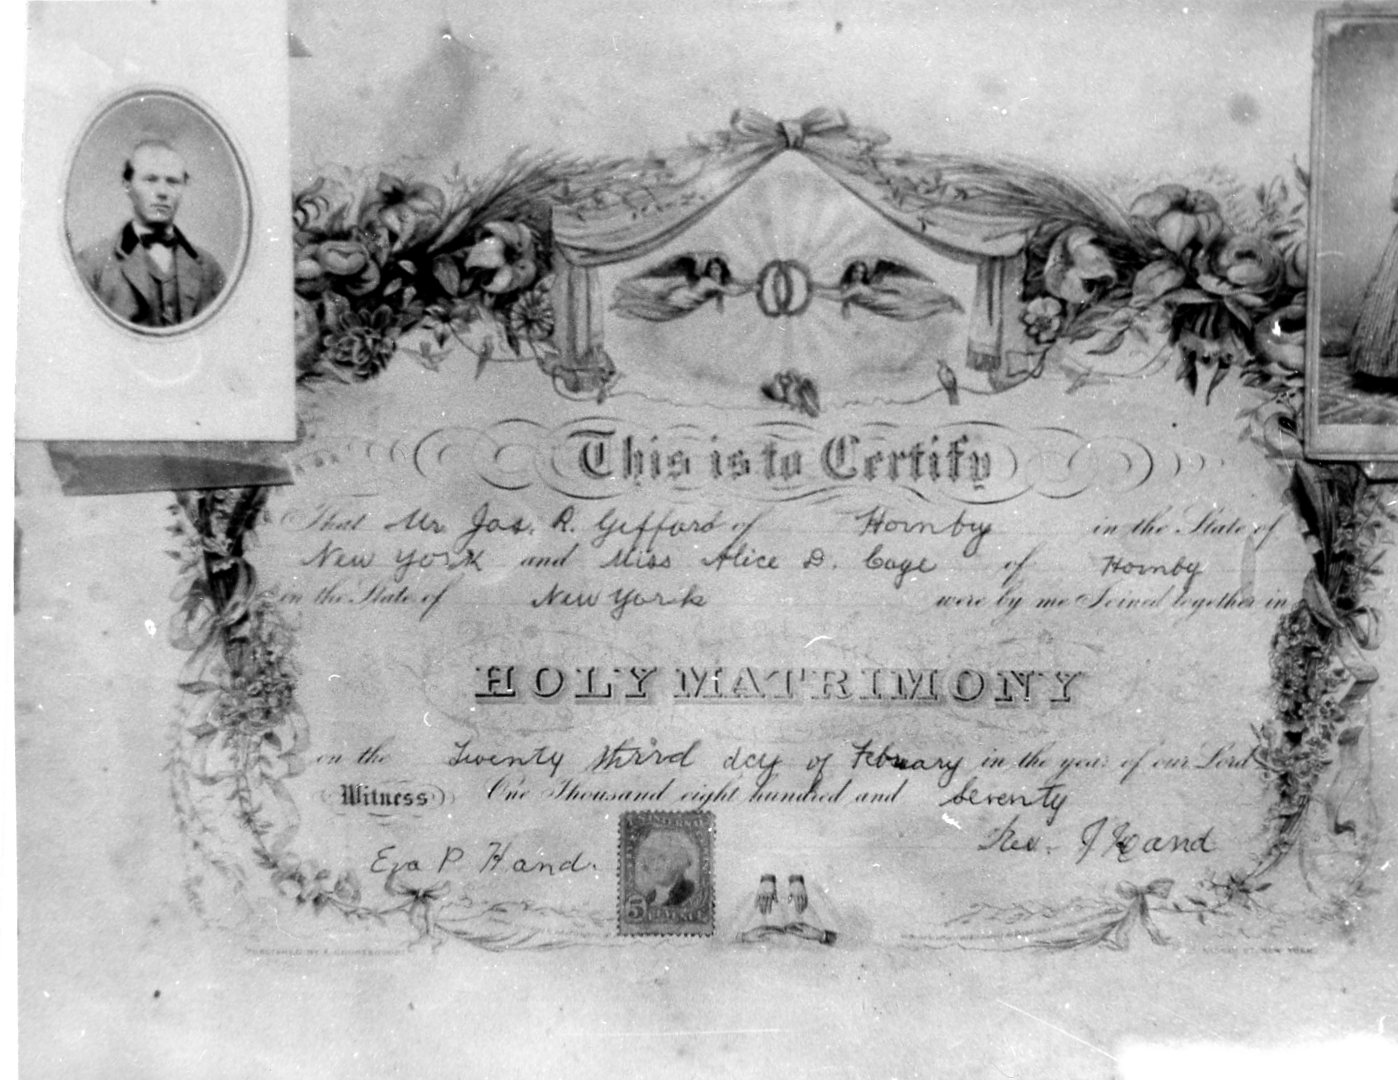 This is to Certify
That Mr Jas. R. Gifford of Hornby in the State of
New York and Miss Alice D. Cage of Hornby
in the State of New York were by me Joined together in
HOLY MATRIMONY
on the Twenty third day of February in the year of our Lord
Witness One Thousand eight hundred and Seventy
Rev. J Hand
Eva P Hand.
U.S. INTERNAL
5 REVENUE